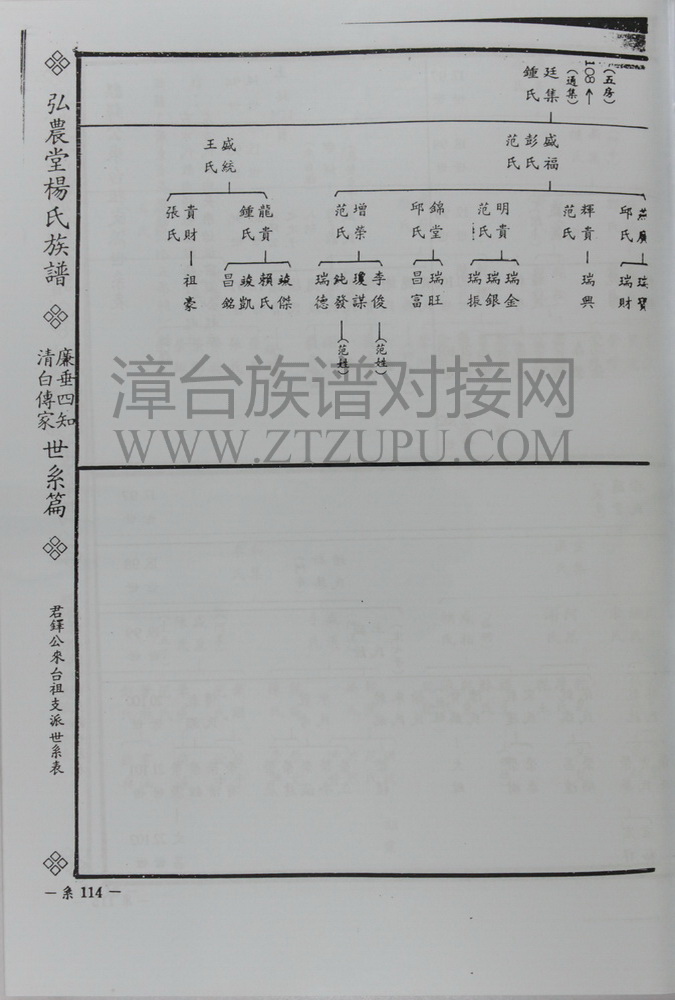 （五房）
108←
（通集）
廷集
鍾氏
盛福
彭氏
范氏
盛統
王氏
邱氏
輝貴
范氏
明貴
范氏
錦堂
邱氏
增榮
范氏
龍貴
鍾氏
貴財
張氏
瑞寶
瑞財
瑞興
瑞金
瑞銀
瑞振
瑞旺
昌富
李俊（范姓）
瓊謀
鈍發（范姓）
瑞德
竣傑
賴氏
竣凱
昌銘
祖豪
弘農堂楊氏族譜
廉垂四知
清白傳家
世系篇
君鐸公來台祖支派世系表
－系 114－
漳台族谱对接网
WWW.ZTZUPU.COM